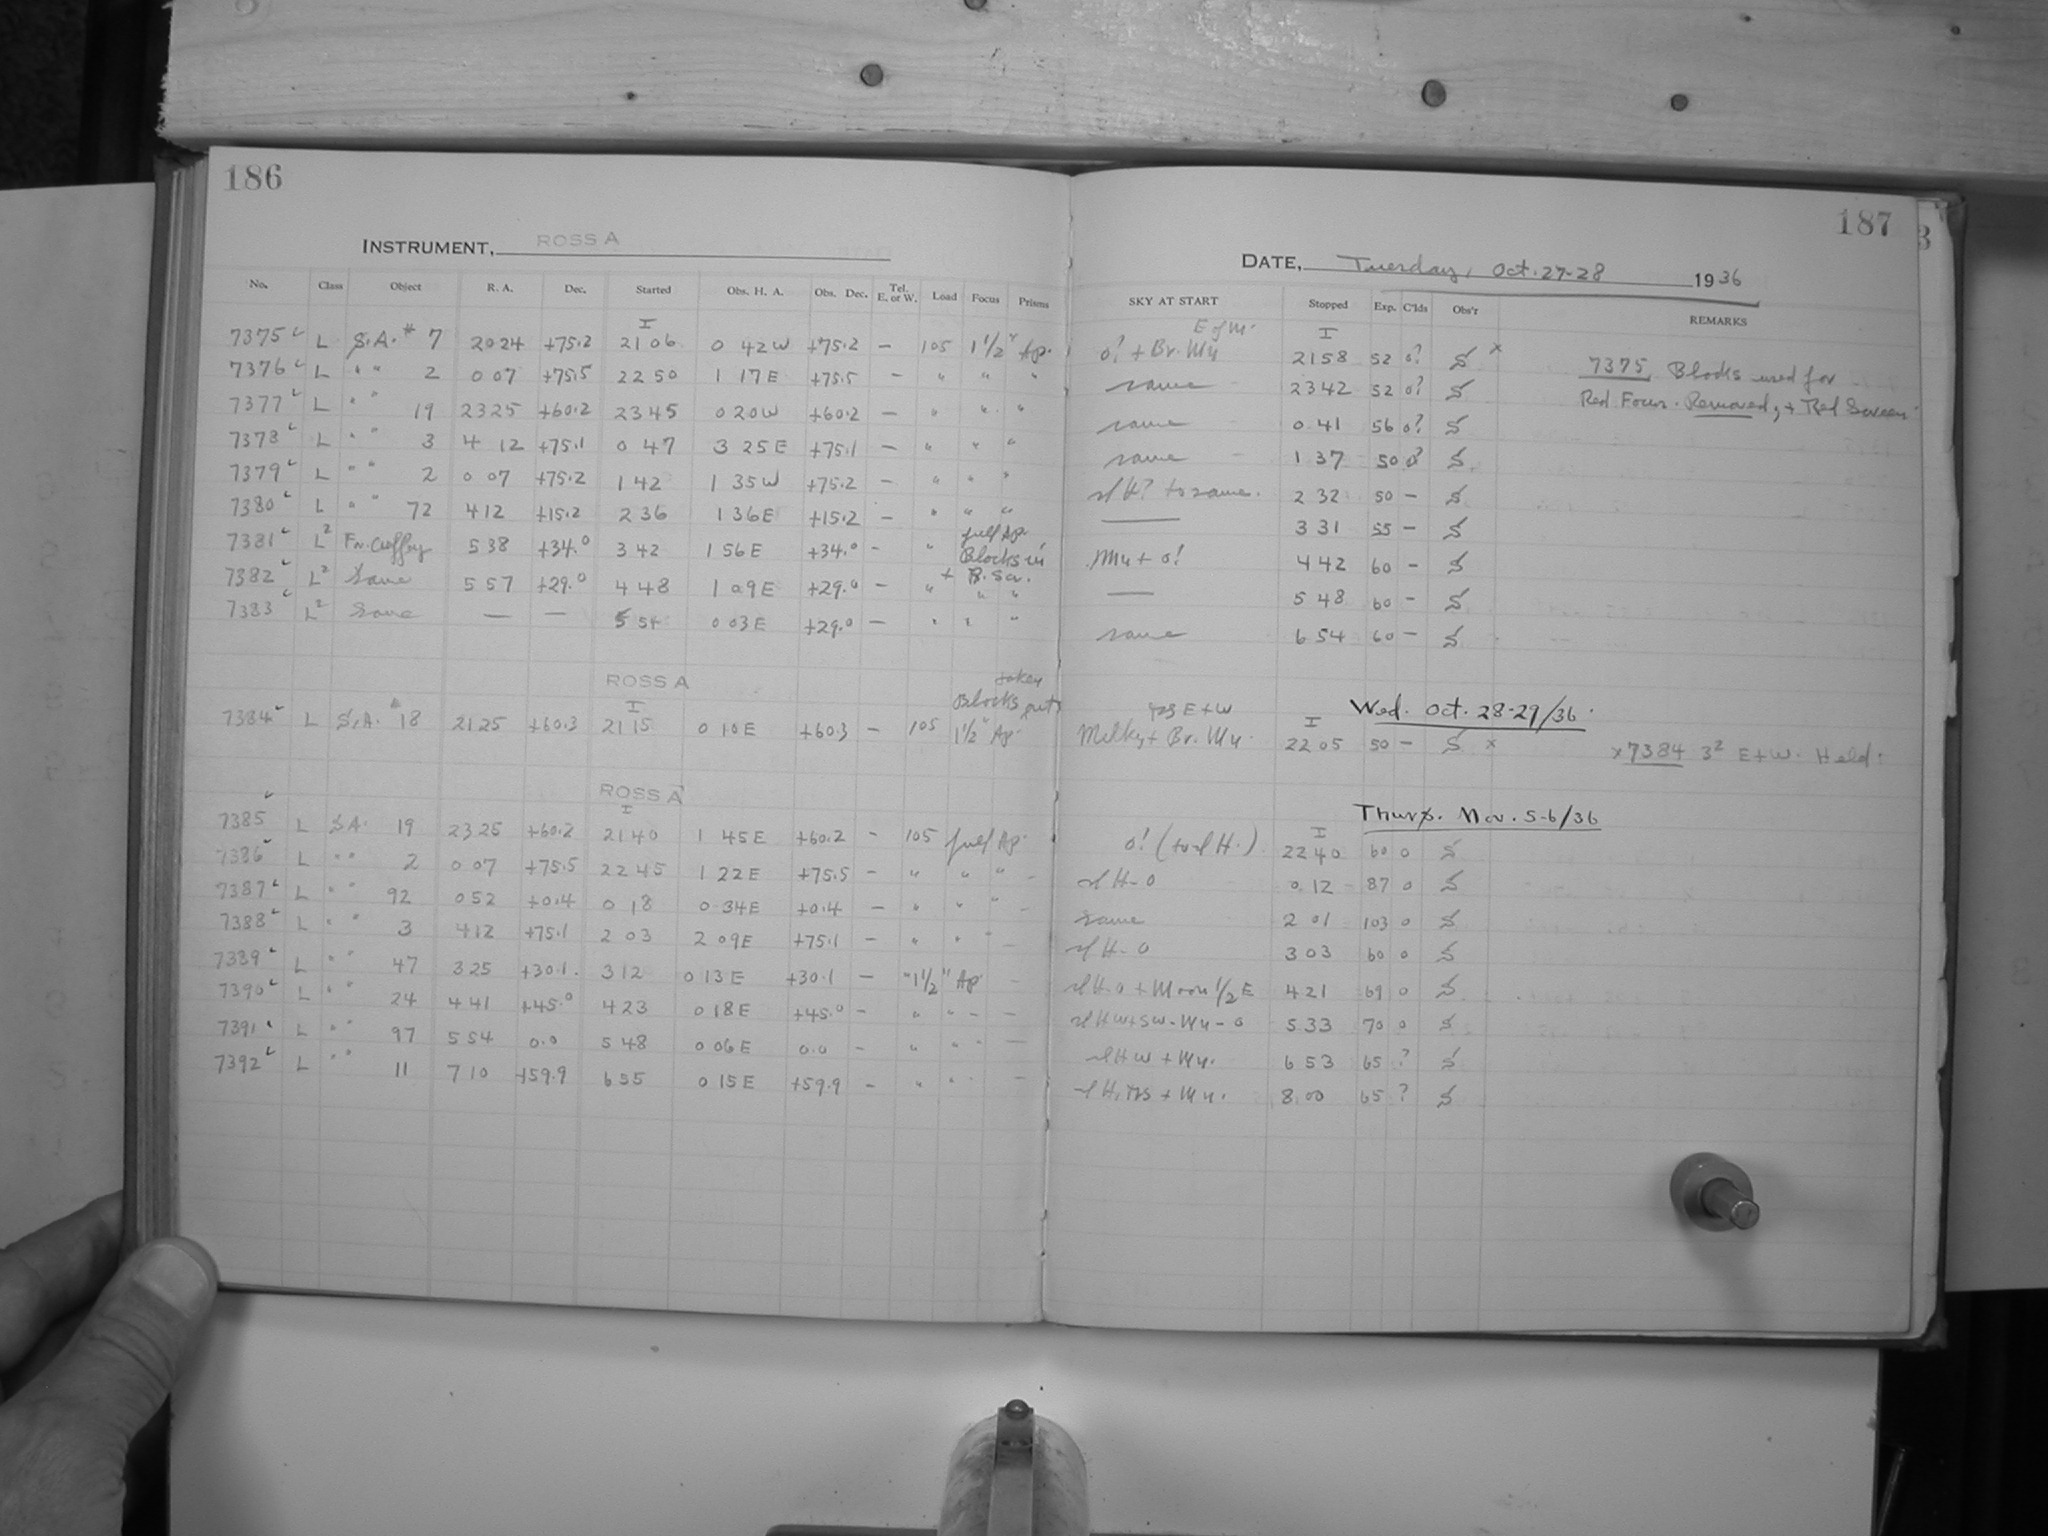 186
INSTRUMENT, ROSS A
No. Class Object R. A. Dec. Started Obs. H. A. Obs. Dec. Tel. E. or W. Load Focus Prisms
I
7375 L S.A. # 7 20 24 +75.2 21 06 0 42 W +75.2 — 105 1 1/2" Ap.
7376 L " " 2 0 07 +75.5 22 50 1 17 E +75.5 — " " "
7377 L " " 19 23 25 +60.2 23 45 0 20 W +60.2 — " " "
7378 L " " 3 4 12 +75.1 0 47 3 25 E +75.1 — " " "
7379 L " " 2 0 07 +75.2 1 42 1 35 W +75.2 — " " "
7380 L " " 72 4 12 +15.2 2 36 1 36 E +15.2 — " " "
7381 L² 5 38 +34.0 3 42 1 56 E +34.0 — " full Ap. Blocks in
7382 L² Same 5 57 +29.0 4 48 1 09 E +29.0 — " + B. Sc. " "
7383 L² Same — — 5 54 0 03 E +29.0 — " " "
ROSS A
I
7384 L S.A. # 18 21 25 +60.3 21 15 0 10 E +60.3 — 105 Blocks taken out 1 1/2" Ap.
ROSS A
I
7385 L S.A. 19 23 25 +60.2 21 40 1 45 E +60.2 — 105 full Ap.
7386 L " " 2 0 07 +75.5 22 45 1 22 E +75.5 — " " " —
7387 L " " 92 0 52 +0.4 0 18 0 34 E +0.4 — " " " —
7388 L " " 3 4 12 +75.1 2 03 2 09 E +75.1 — " " " —
7389 L " " 47 3 25 +30.1 3 12 0 13 E +30.1 — " 1 1/2" Ap. —
7390 L " " 24 4 41 +45.0 4 23 0 18 E +45.0 — " " — —
7391 L " " 97 5 54 0.0 5 48 0 06 E 0.0 — " " " —
7392 L " " 11 7 10 +59.9 6 55 0 15 E +59.9 — " " " —
187
DATE, Tuesday, Oct. 27-28 1936
SKY AT START Stopped Exp. C'lds Obs'r REMARKS
E of M. I
0? + Br. Mn 21 58 52 0? S x
same 23 42 52 0? S
same 0 41 56 0? S
same 1 37 50 0? S
sl H? to same. 2 32 50 — S
— 3 31 55 — S
Mn + 0! 4 42 60 — S
— 5 48 60 — S
same 6 54 60 — S
7375 Blocks used for
Red Focus. Removed, + Red Screen.
Wed. Oct. 28-29/36.
E+W I
Milky + Br. Mn. 22 05 50 — S x
x 7384 3² E+W. Held.
Thurs. Nov. 5-6/36
I
0! (to sl H.) 22 40 60 0 S
sl H-0 0 12 87 0 S
same 2 01 103 0 S
sl H-0 3 03 60 0 S
sl H-0 + Moon 1/2 E 4 21 69 0 S
sl H W+SW-Mn-0 5 33 70 0 S
sl H W + Mn. 6 53 65 ? S
sl H, + Mn. 8 00 65 ? S